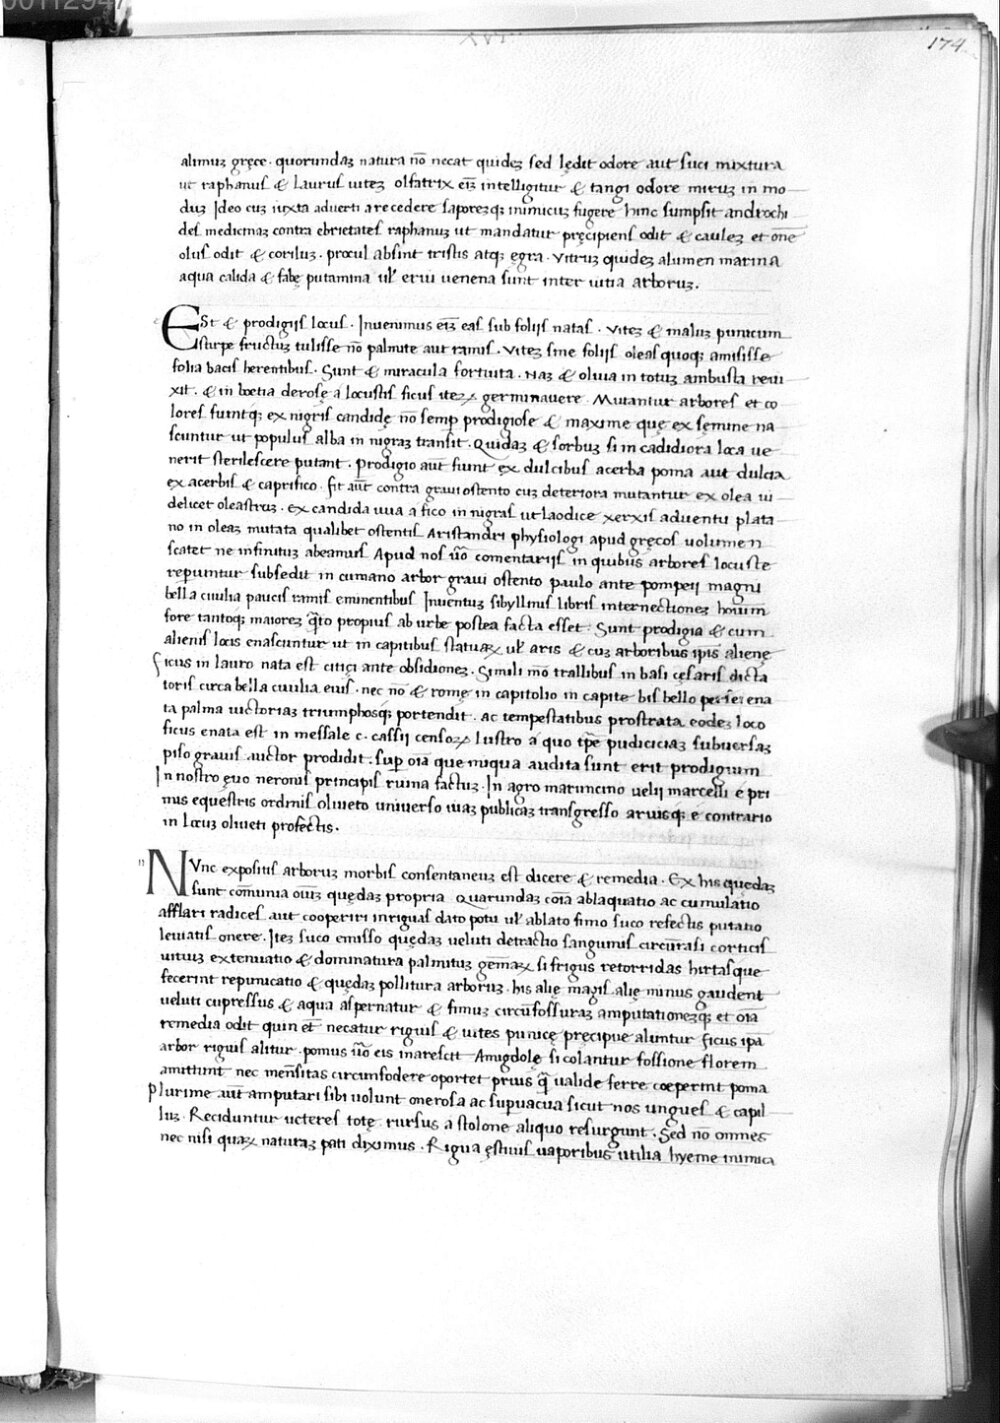 00112947
174
alimuȝ gręce. quorundaȝ natura nō necat quideȝ sed lędit odore aut suci mixtura
ut raphanus & laurus uiteȝ olfatrix eīȝ intelligitur & tangi odore miruȝ in mo
duȝ Ideo cuȝ iuxta aduerti a recedere saporeȝq; inimicuȝ fugere hinc sumpsit androchi
des medicinaȝ contra ebrietates raphanuȝ ut mandatur pręcipiens odit & cauleȝ et on̄e
olus odit & coriluȝ. procul absint tristis atq; ęgra. Vitruȝ quideȝ alumen marina
aqua calida & fabę putamina ul' erui uenena sunt inter uitia arboruȝ.
ESt & prodigijs locus. Inuenimus eīȝ eas sub folijs natas. Viteȝ & maluȝ punicum
stirpe fructuȝ tulisse nō palmite aut ramis. Viteȝ sine folijs oleas quoq; amisisse
folia bacis herentibus. Sunt & miracula fortuita. Naȝ & oliua in totuȝ ambusta reui
xit. & in boetia derosę a locustis ficus iteȝ germinauere. Mutantur arbores et co
lores fiuntq; ex nigris candidę nō semp prodigiose & maxime quę ex semine na
scuntur ut populus alba in nigraȝ transit. Quidaȝ & sorbus si in cadidiora loca ue
nerit sterilescere putant. prodigio aut̄ fiunt ex dulcibus acerba poma aut dulcia
ex acerbis & caprifico. fit aut̄ contra graui ostento cuȝ deteriora mutantur ex olea ui
delicet oleastruȝ. ex candida uua a fico in nigras ut laodice xerxis aduentu plata
no in oleaȝ mutata qualibet ostentis Aristandri physiologi apud gręcos volumen
scatet ne infinituȝ abeamus Apud nos ūo comentarijs in quibus arbores locuste
reperiuntur subsedit in cumano arbor graui ostento paulo ante pompeij magni
bella ciuilia paucis ramis eminentibus Inuentuȝ sibyllinis libris internectioneȝ hōium
fore tantoq; maioreȝ q̄to propius ab urbe postea facta esset. Sunt prodigia & cum
alienis locis enascuntur ut in capitibus statuaȝ ul' aris & cuȝ arboribus ipīs alienę
ficus in lauro nata est citici ante obsidioneȝ. Simili mō trallibus in basi cęsaris dicta
toris circa bella ciuilia eius. nec nō & romę in capitolio in capite bis bello persei ena
ta palma uictoriaȝ triumphosq; portendit. ac tempestatibus prostrata eodeȝ loco
ficus enata est in messale c. cassij censoȝ lustro a quo tp̄e pudiciciaȝ subuersaȝ
piso grauis auctor prodidit. sup oīa que iniqua audita sunt erit prodigium
In nostro ęuo neronis principis ruina factuȝ. In agro marruncino uelij marcelli e pri
mis equestris ordinis oliueto uniuerso uiaȝ publicaȝ transgresso aruisq; e contrario
in locuȝ oliueti profectis.
NVnc expositis arboruȝ morbis consentaneuȝ est dicere & remedia. Ex his quędaȝ
sunt com̄unia oiūȝ quędaȝ propria. Quarundaȝ coīa ablaquatio ac cumulatio
afflari radices aut cooperiri inriguas dato potu ul' ablato fimo suco refectis putatio
leuatis onere. Iteȝ suco emisso quędaȝ ueluti detractio sanguinis circūrasi corticis
uitiuȝ extenuatio & dominatura palmituȝ gem̄aȝ si frigus retorridas hirtasque
fecerint repumicatio & quędaȝ pollitura arboruȝ. his alię magis alię minus gaudent
ueluti cupressus & aqua aspernatur & fimuȝ circūfossuraȝ amputationeȝq; et oīa
remedia odit quin et̄ necatur riguis & uites punicę pręcipue aluntur ficus ipā
arbor riguis alitur. pomus ūo eis inarescit Amigdolę si colantur fossione florem
amittunt nec mēnsitas circunfodere oportet prius q̄ ualide ferre coeperint poma
Plurime aut̄ amputari sibi uolunt onerosa ac supuacua sicut nos ungues & capil
luȝ. Reciduntur ueteres totę. rursus a stolone aliquo resurgunt. Sed nō omnes
nec nisi quaȝ naturaȝ pati diximus. Rigua ęstiuis uaporibus utilia hyeme inimica